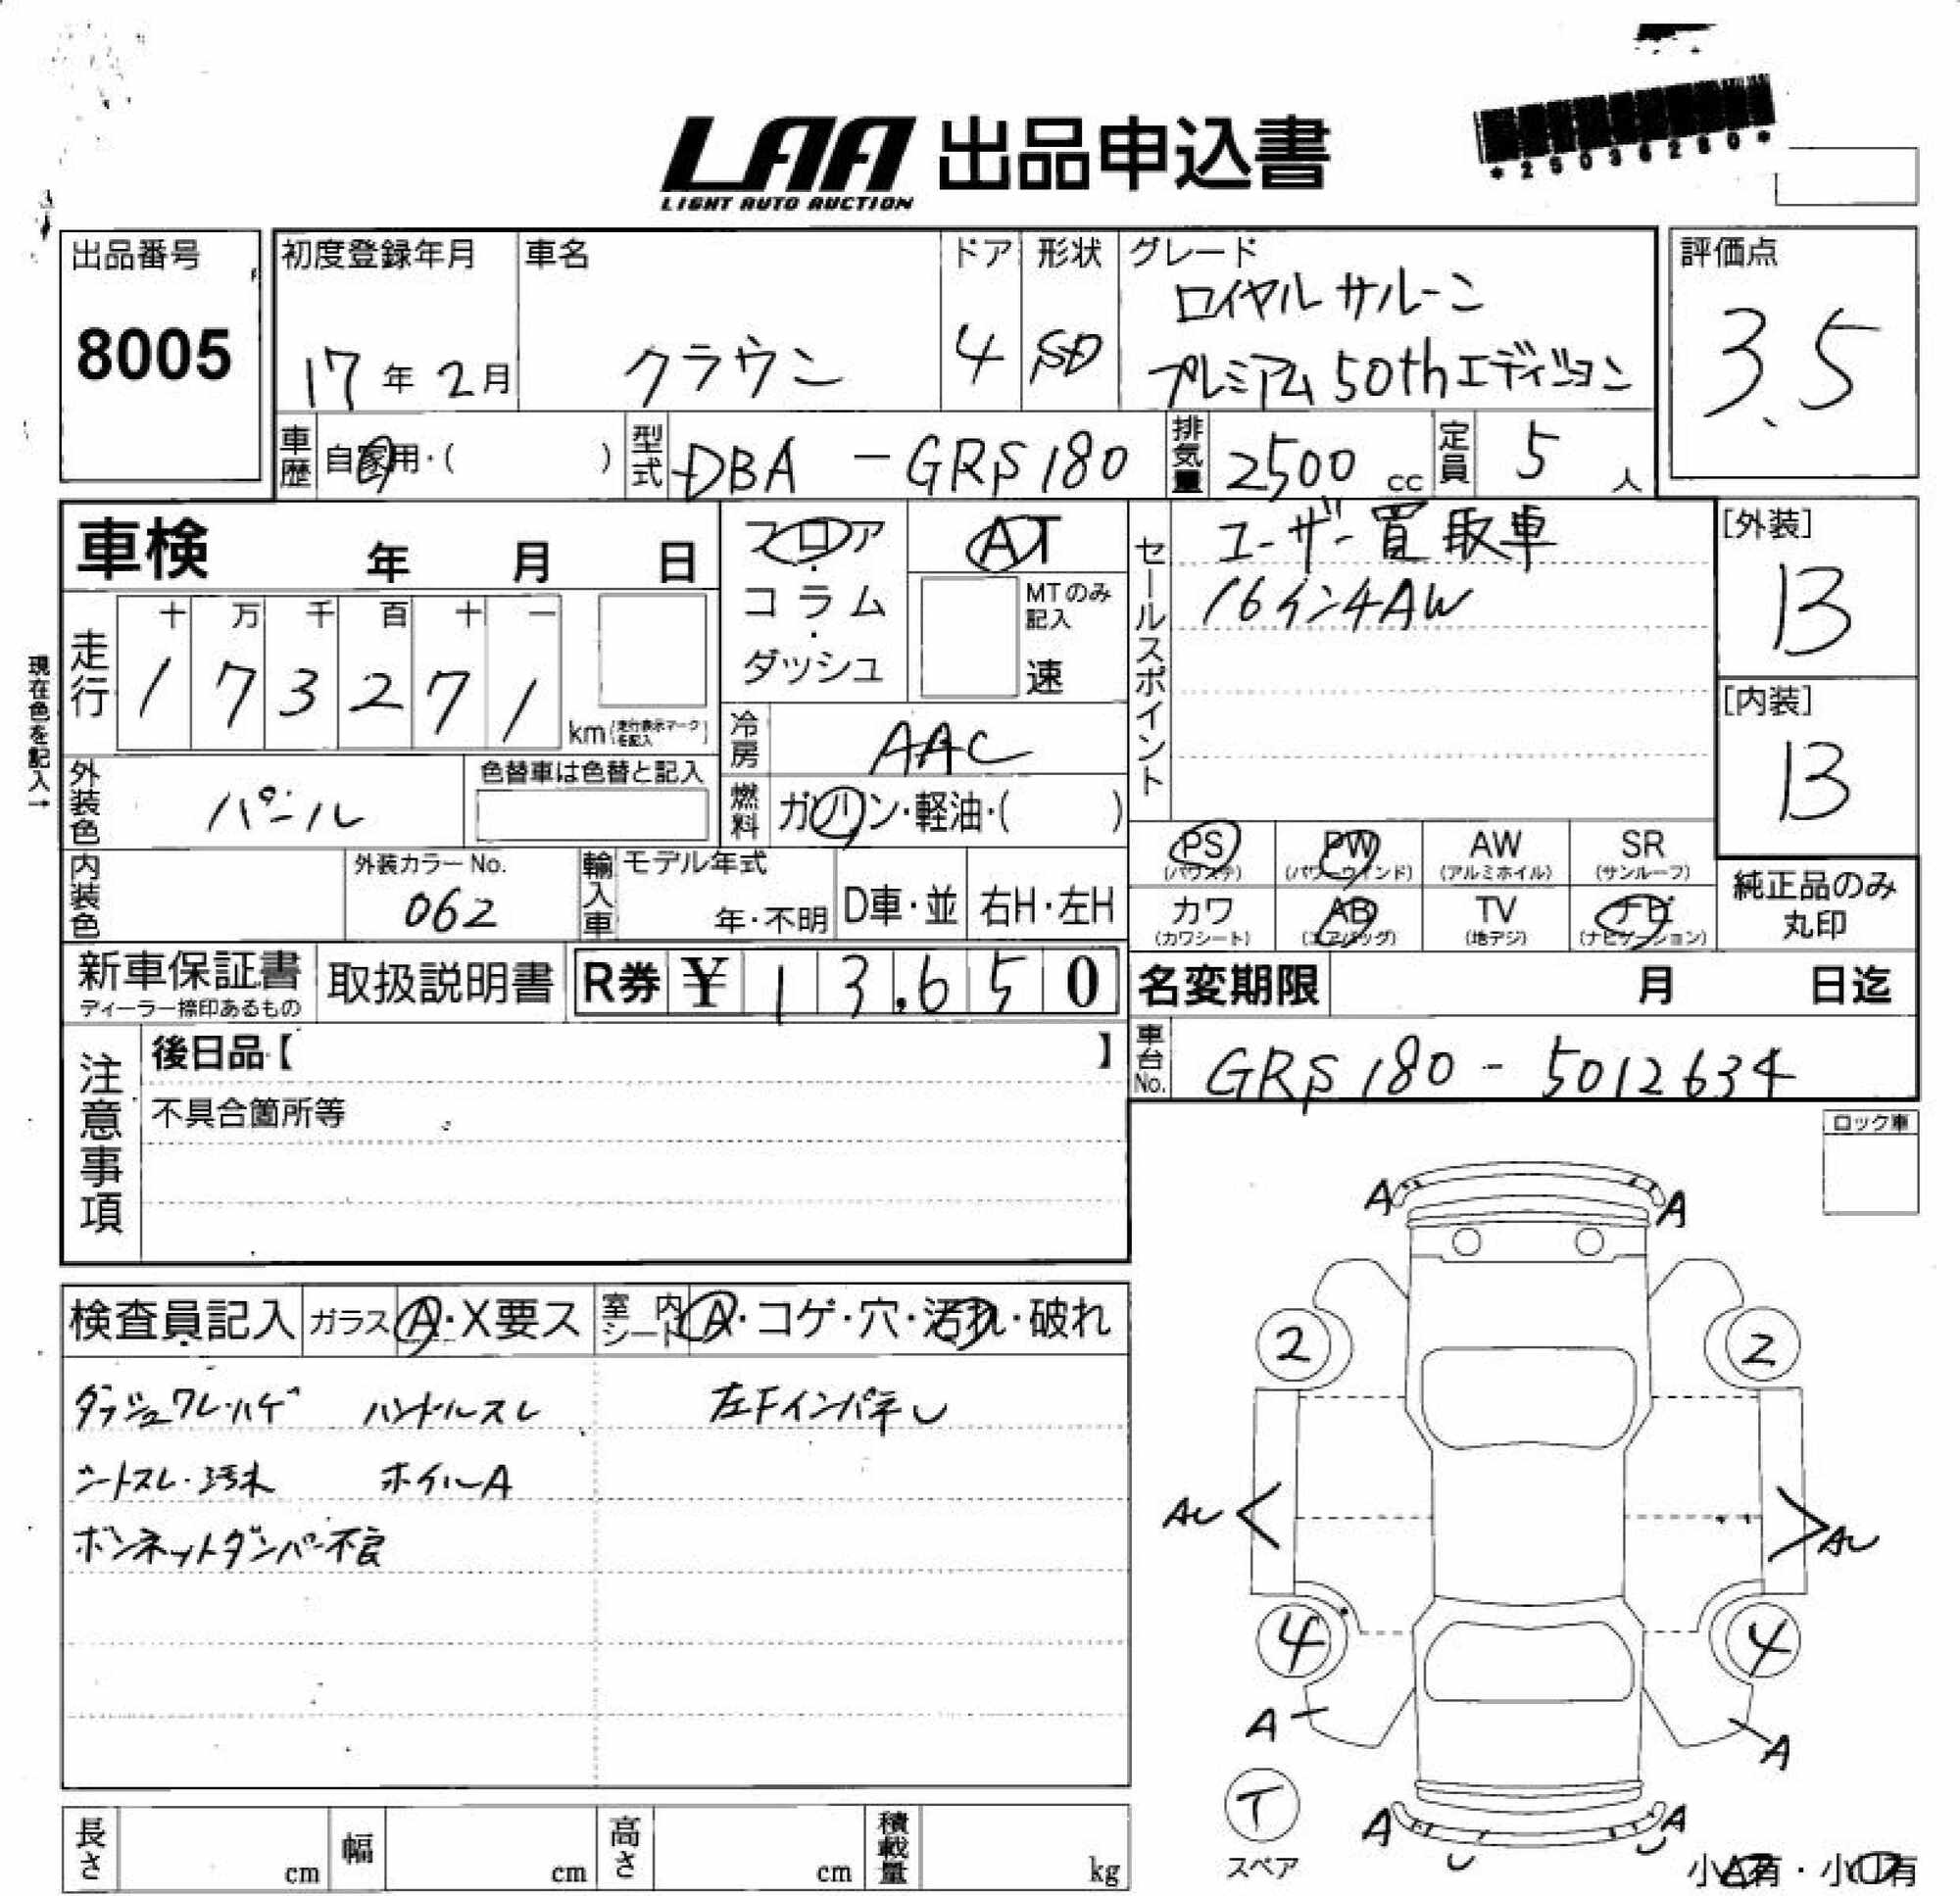 LAA 出品申込書
LIGHT AUTO AUCTION
*25036280*
出品番号
8005
初度登録年月
17年2月
車名
クラウン
ドア
4
形状
SD
グレード
ロイヤルサルーン
プレミアム 50thエディション
評価点
3.5
車歴
自家用・( )
型式
DBA - GRS180
排気量
2500 cc
定員
5 人
車検 年 月 日
フロア・コラム・ダッシュ
AT
MTのみ記入
速
セールスポイント
ユーザー買取車
16インチAW
[外装]
B
[内装]
B
現在色を記入→
走行
十 万 千 百 十 一
1 7 3 2 7 1
km(走行表示マークを記入)
冷房
AAC
外装色
パール
色替車は色替と記入
燃料
ガソリン・軽油・( )
内装色
外装カラーNo.
062
輸入車
モデル年式
年・不明
D車・並
右H・左H
PS (パワステ)
PW (パワーウインド)
AW (アルミホイル)
SR (サンルーフ)
カワ (カワシート)
AB (エアバッグ)
TV (地デジ)
ナビ (ナビゲーション)
純正品のみ丸印
新車保証書
ディーラー捺印あるもの
取扱説明書
R券 ¥ 13,650
名変期限 月 日迄
車台No.
GRS180 - 5012634
注意事項
後日品【 】
不具合箇所等
ロック車
検査員記入
ガラス A・X要ス
室内シート A・コゲ・穴・汚れ・破れ
ダッシュワレ・ハゲ ハンドルスレ 左Fインパネし
シートスレ・汚れ ホイルA
ボンネットダンパー不良
A A
2 2
AU AU
4 4
A A
T
スペア
A A
U U
小A有・小U有
長さ cm
幅 cm
高さ cm
積載量 kg